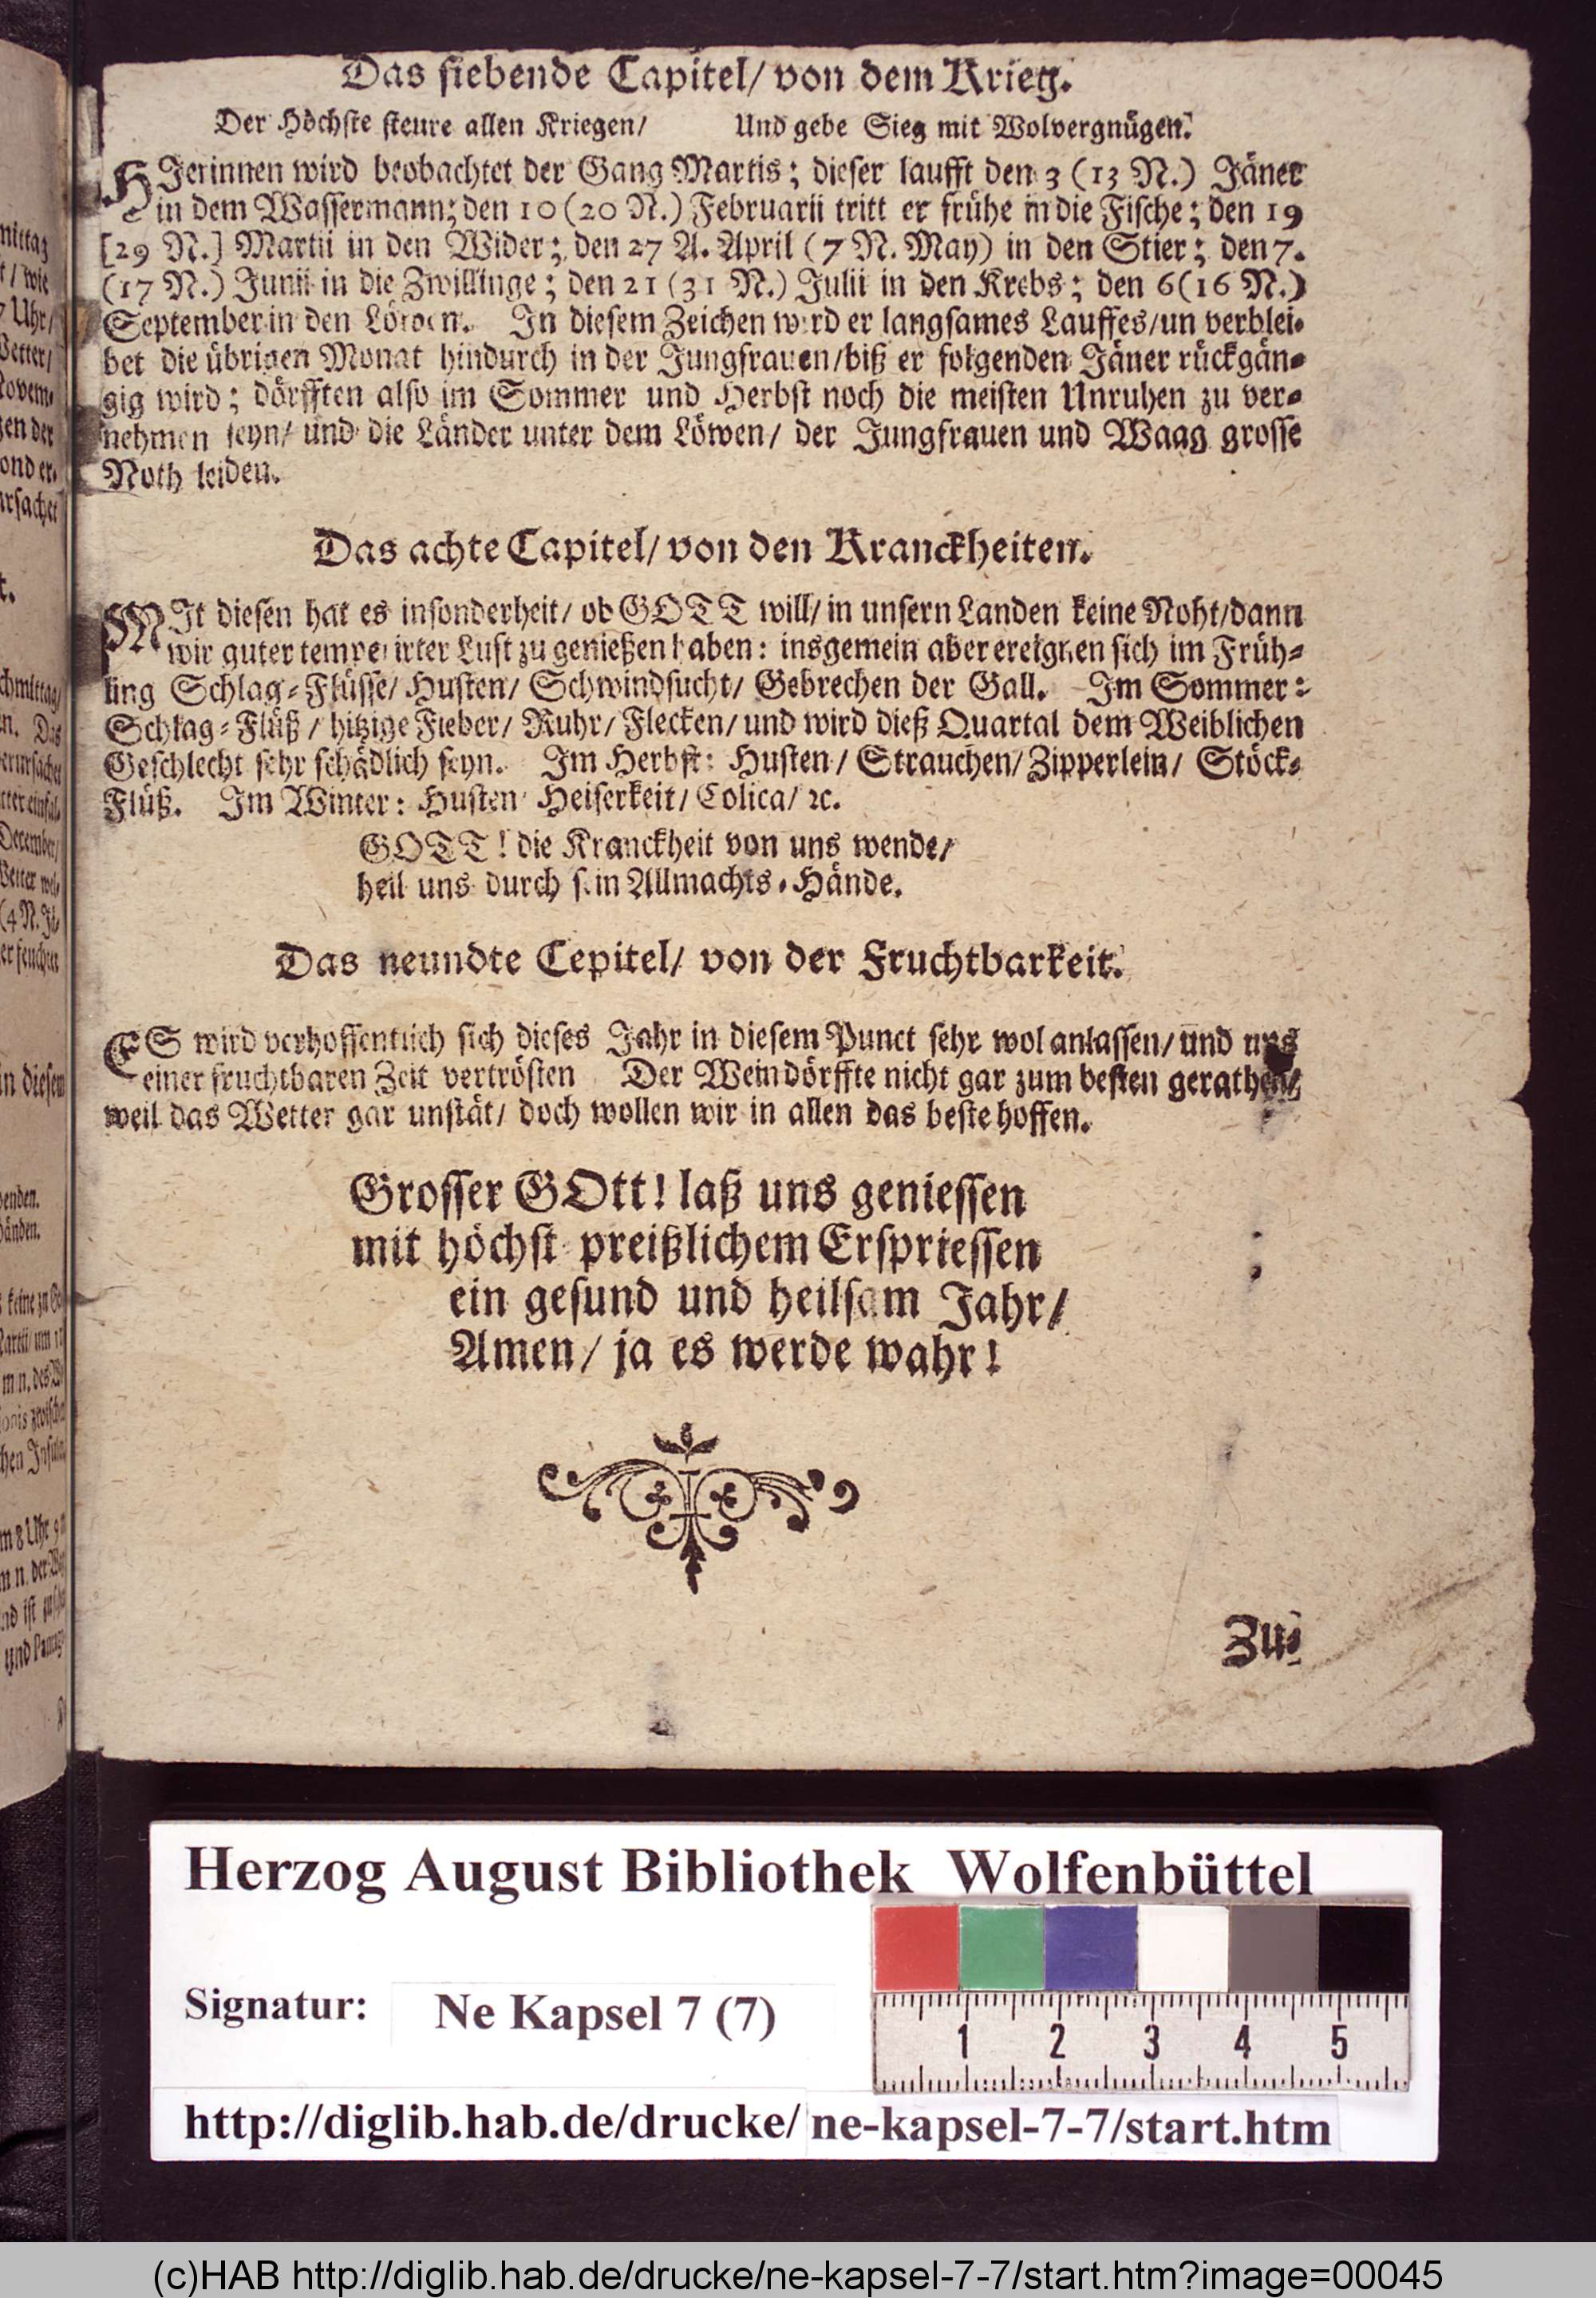 Das siebende Capitel/ von dem Krieg.
Der Höchste steure allen Kriegen/ Und gebe Sieg mit Wolvergnügen.
HIerinnen wird beobachtet der Gang Martis; dieser laufft den 3 (13 N.) Jäner
in dem Wassermann; den 10 (20 N.) Februarii tritt er frühe in die Fische; den 19
[29 N.] Martii in den Wider; den 27 A. April (7 N. May) in den Stier; den 7.
(17 N.) Junii in die Zwillinge; den 21 (31 N.) Julii in den Krebs; den 6 (16 N.)
September in den Löwen. In diesem Zeichen wird er langsames Lauffes/ un verblei-
bet die übrigen Monat hindurch in der Jungfrauen/ biß er folgenden Jäner rückgän-
gig wird; dörfften also im Sommer und Herbst noch die meisten Unruhen zu ver-
nehmen seyn/ und die Länder unter dem Löwen/ der Jungfrauen und Waag grosse
Noth leiden.
Das achte Capitel/ von den Kranckheiten.
MIt diesen hat es insonderheit/ ob GOTT will/ in unsern Landen keine Noht/ dann
wir guter temperirter Lust zu genießen haben: insgemein aber ereignen sich im Früh-
ling Schlag-Flüsse/ Husten/ Schwindsucht/ Gebrechen der Gall. Im Sommer:
Schlag-Flüß/ hitzige Fieber/ Ruhr/ Flecken/ und wird dieß Quartal dem Weiblichen
Geschlecht sehr schädlich seyn. Im Herbst: Husten/ Strauchen/ Zipperlein/ Stöck-
Flüß. Im Winter: Husten Heiserkeit/ Colica/ ꝛc.
GOTT! die Kranckheit von uns wende/
heil uns durch sein Allmachts-Hände.
Das neundte Cepitel/ von der Fruchtbarkeit.
ES wird verhoffentlich sich dieses Jahr in diesem Punct sehr wol anlassen/ und uns
einer fruchtbaren Zeit vertrösten Der Wein dörffte nicht gar zum besten gerathen/
weil das Wetter gar unstät/ doch wollen wir in allen das beste hoffen.
Grosser GOtt! laß uns geniessen
mit höchst preißlichem Erspriessen
ein gesund und heilsam Jahr/
Amen/ ja es werde wahr!
Zu-
Herzog August Bibliothek Wolfenbüttel
Signatur: Ne Kapsel 7 (7)
1 2 3 4 5
http://diglib.hab.de/drucke/ ne-kapsel-7-7/start.htm
(c)HAB http://diglib.hab.de/drucke/ne-kapsel-7-7/start.htm?image=00045